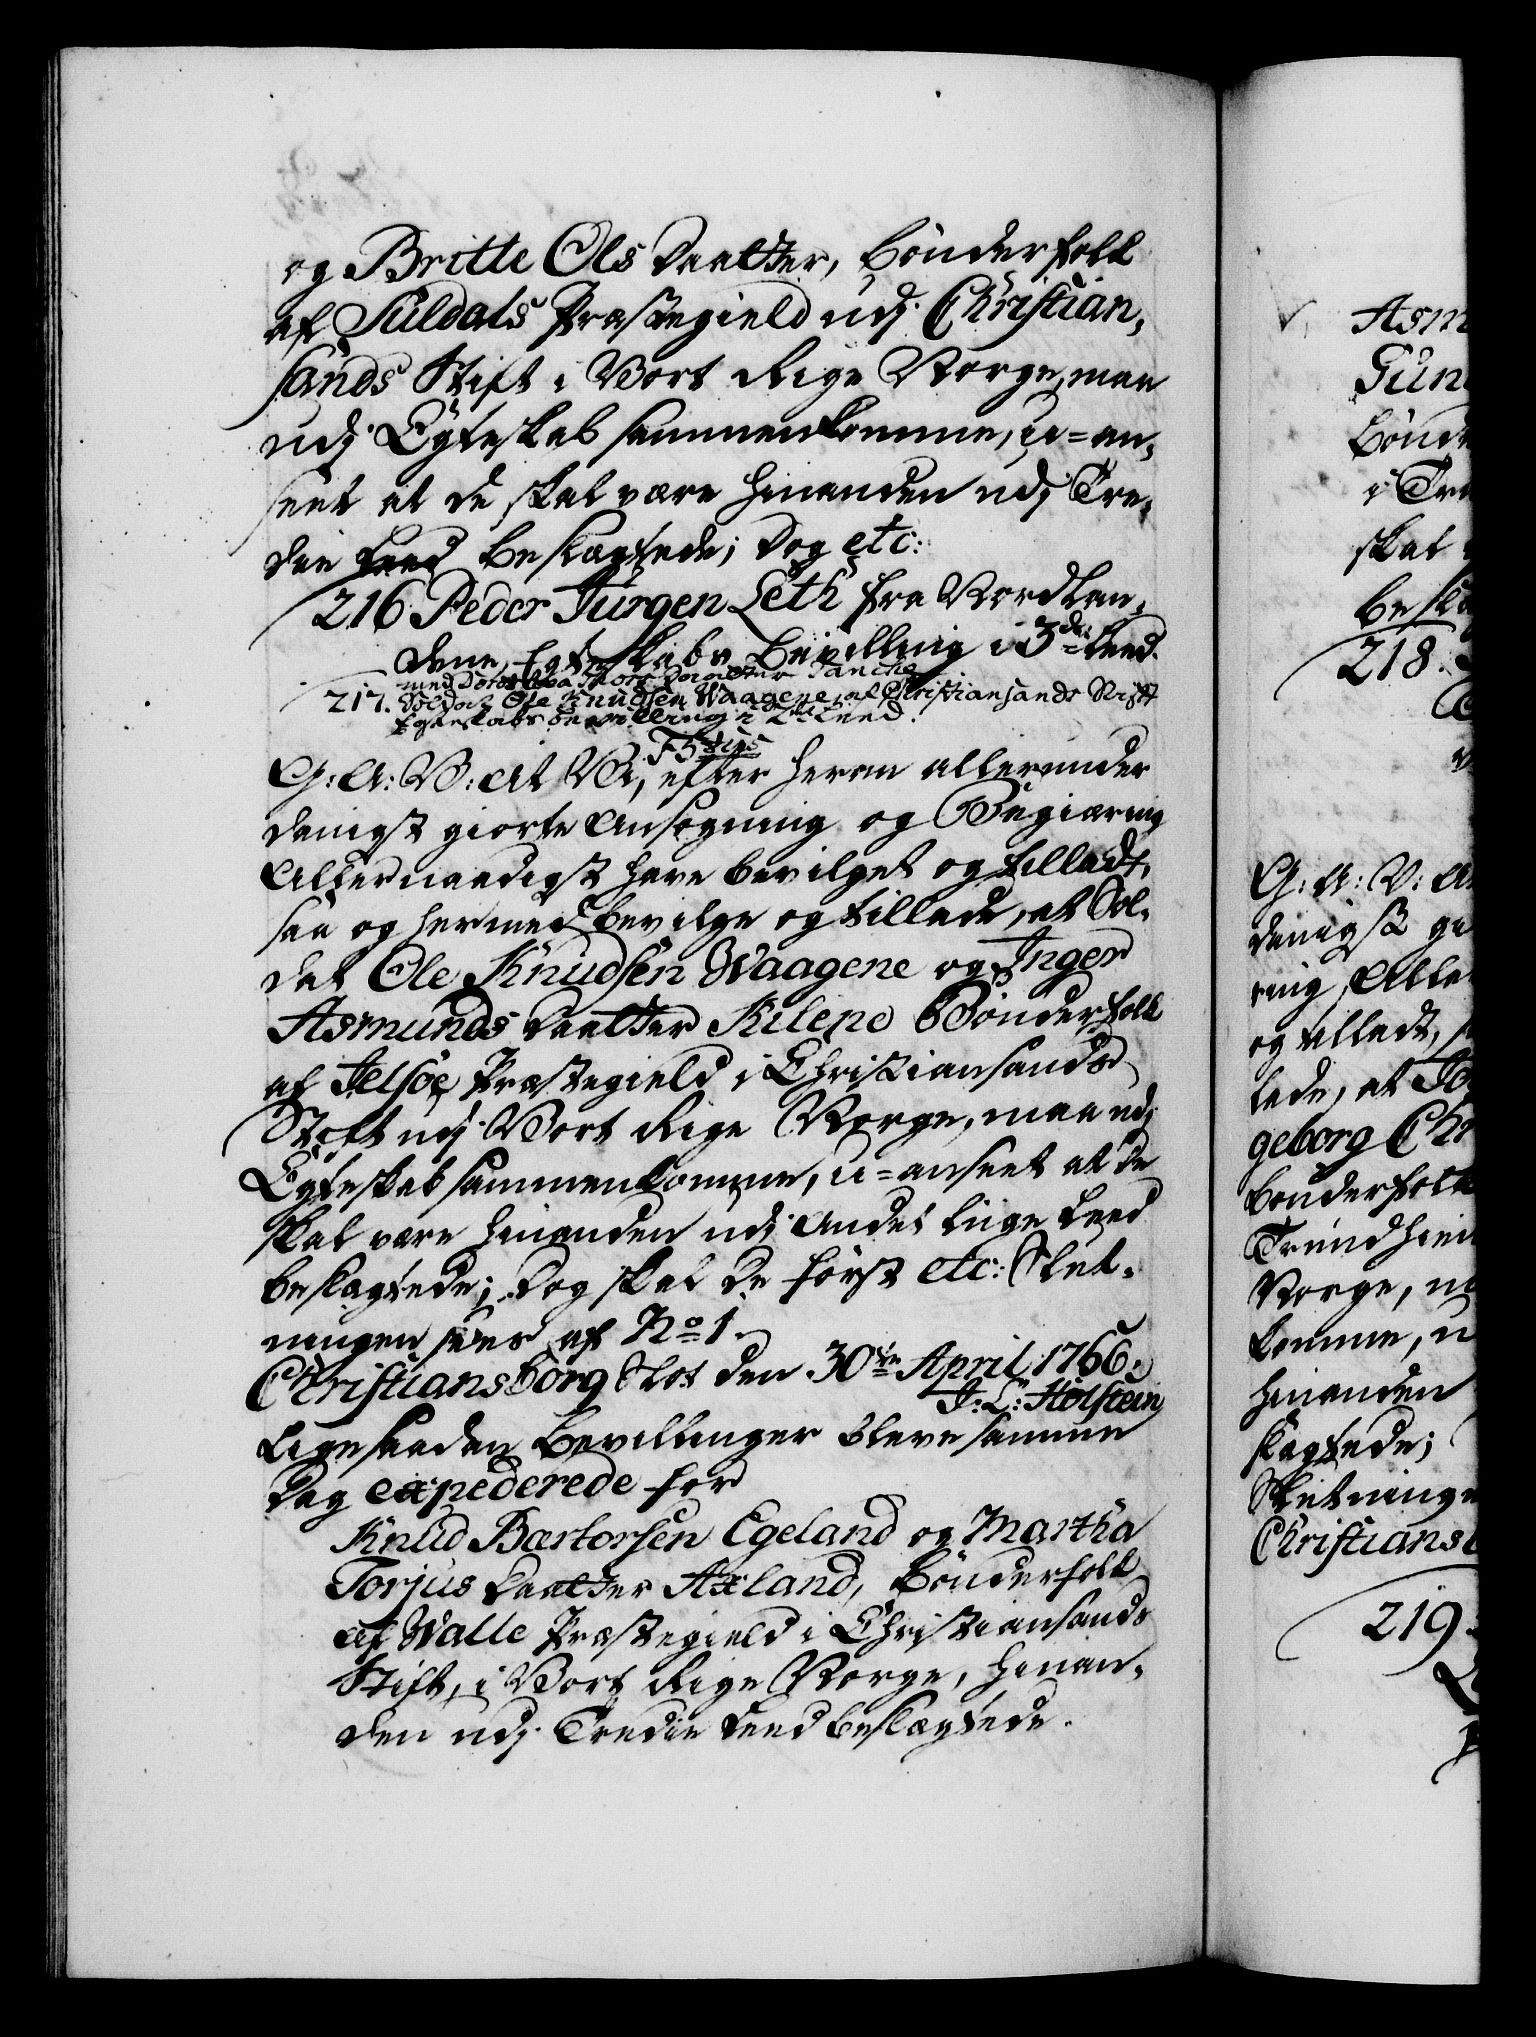 og Britte Ols Daatter, bönderfolk
af Suldals Præstegield udj Christian,
sands Stift i Vort Rige Norge, maa
udj Egteskab sammenkomme, u=an,
seet at de skal være hinanden udj Tre,
die Leed beslægtede; Dog etc:
216 Peder Jürgen Leth fra Nordlan,
dene, Egteskabs Bevilling i 3die Leed.
med Dorothea Thors Daatter Tanche
217. Soldat Ole Knudsen Waagene af Christiansands Stift
Egteskabs bevilling i 2det Leed.
F5tus
G: A: V: At Vi, efter herom allerunder
danigst giorte Ansøgning og Begiæring
Allernaadigst have bevilget og tilladt,
saa og hermed bevilge og tillade, at Sol,
dat Ole Knudsen Waagene og Inger
Asmunds Daatter Kilene Bönderfolk
af Jelsöe Præstegield i Christiansands
Stift udj Vort Rige Norge, maa udj
Egteskab sammenkomme, u=anseet at de
skal være hinanden udj Andet Liige Leed
beslægtede; Dog skal de först etc: Slut,
ningen sees af No 1.
Christiansborg Slot den 30te April 1766.
J: L: Holstein
Ligesaadan Bevillinger bleve samme
Dag expederede for
Knud Bærtorsen Egeland og Martha
Torjus Daatter Axland, Bönderfolk
af Walle Præstegield i Christiansands
Stift, i Vort Rige Norge, hinan,
den udj Tredie Leed beslægtede.
Asm
Gun
bönde
i Tr
skal
besl
218.
G: A: V: A
danigst gi
ring, Aller
og tilladt, s
lade, at
geborg Chr
bönderfolk
Trundhiem
Norge, m
komme, u
hinanden
slægtede;
Slutninge
Christians
219